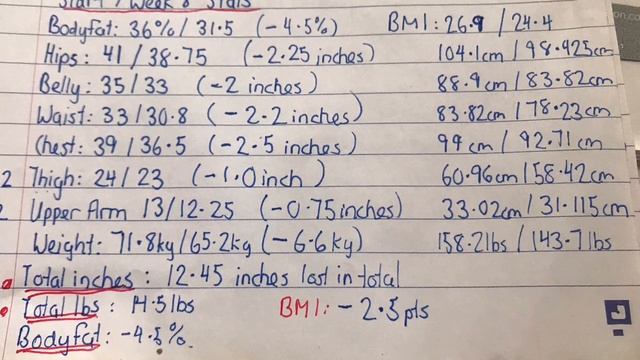 Start / Week 8 Stats
Bodyfat: 36% / 31.5 (-4.5%) BMI: 26.9 / 24.4
Hips: 41 / 38.75 (-2.25 inches) 104.1cm / 98.425cm
Belly: 35/33 (-2 inches) 88.9cm / 83.82cm
Waist: 33/30.8 (-2.2 inches) 83.82cm / 78.23cm
Chest: 39/36.5 (-2.5 inches) 99cm / 92.71cm
2 Thigh: 24/23 (-1.0 inch) 60.96cm / 58.42cm
2 Upper Arm 13/12.25 (-0.75 inches) 33.02cm / 31.115cm
Weight: 71.8kg/65.2kg (-6.6kg) 158.2lbs / 143.7lbs
Total inches: 12.45 inches lost in total
Total lbs: 14.5lbs BMI: -2.5 pts
Bodyfat: -4.5%.